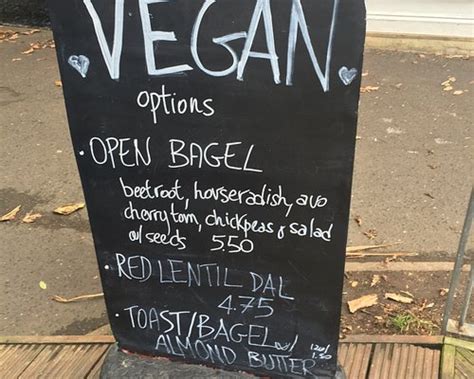 VEGAN
options
· OPEN BAGEL
beetroot, horseradish, avo
cherry tom, chickpeas & salad
w/ seeds 5.50
· RED LENTIL DAL
4.75
· TOAST/BAGEL w/ 1.20/
ALMOND BUTTER 1.50